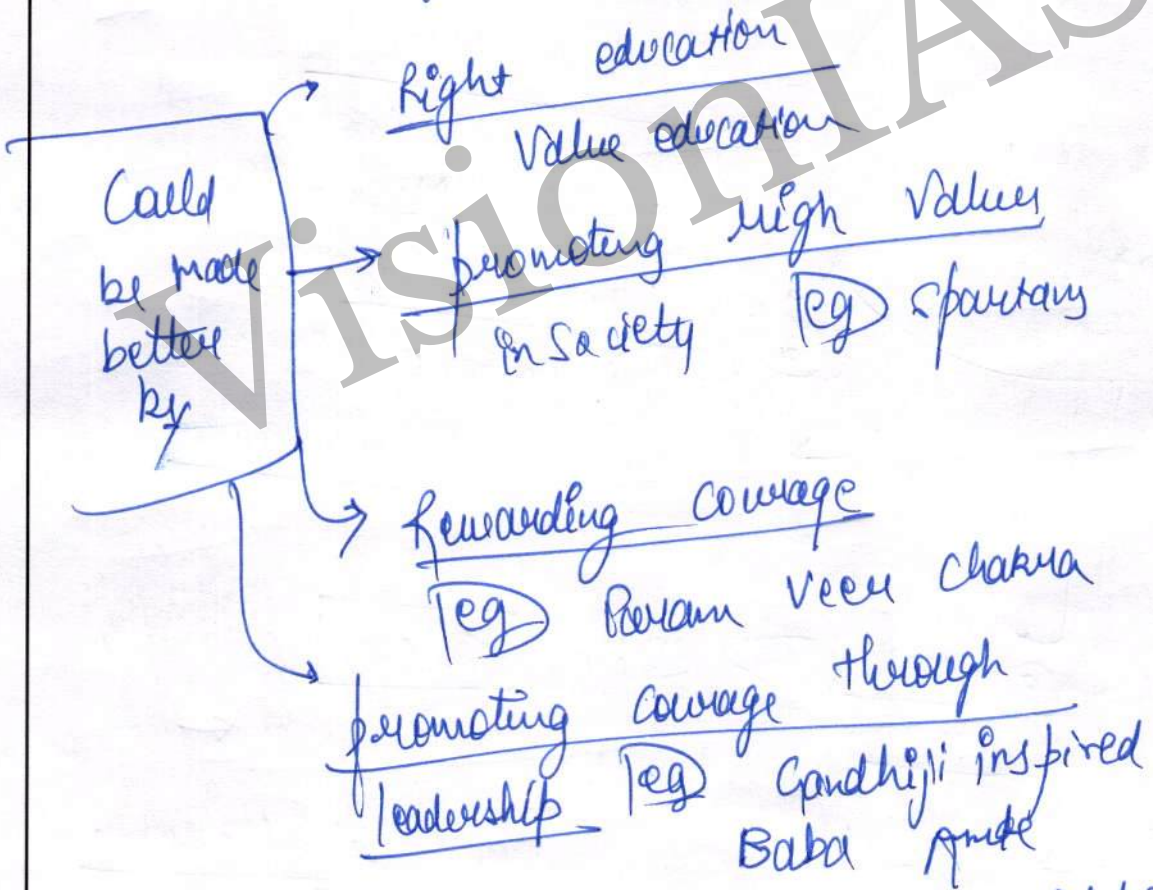 Could
be made
better
by
Right education
Value education
promoting high Values
in society eg Spartans
Rewarding courage
eg Param Veer Chakra
promoting courage through
leadership eg Gandhiji inspired
Baba Amte
VisionIAS